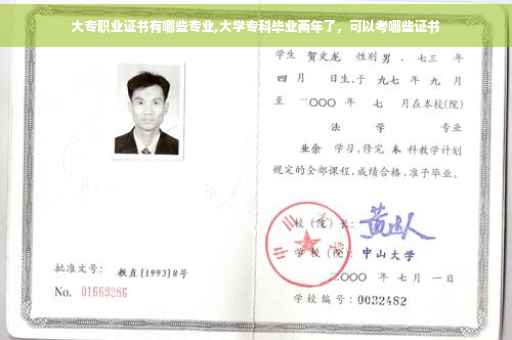 大专职业证书有哪些专业,大学专科毕业两年了，可以考哪些证书
学生 贺文龙 性别 男 ，七三 年
四 月 日生，于 九七 年 九 月
至 二〇〇〇 年 七 月在本校(院)
法 学 专业
业余 学习，修完 本 科教学计划
规定的全部课程，成绩合格，准予毕业。
校（院）长：
学 校（院）：中山大学
二〇〇〇 年 七 月 一 日
学校编号：0032482
批准文号： 教直[1993]8号
No. 01669286
中山大